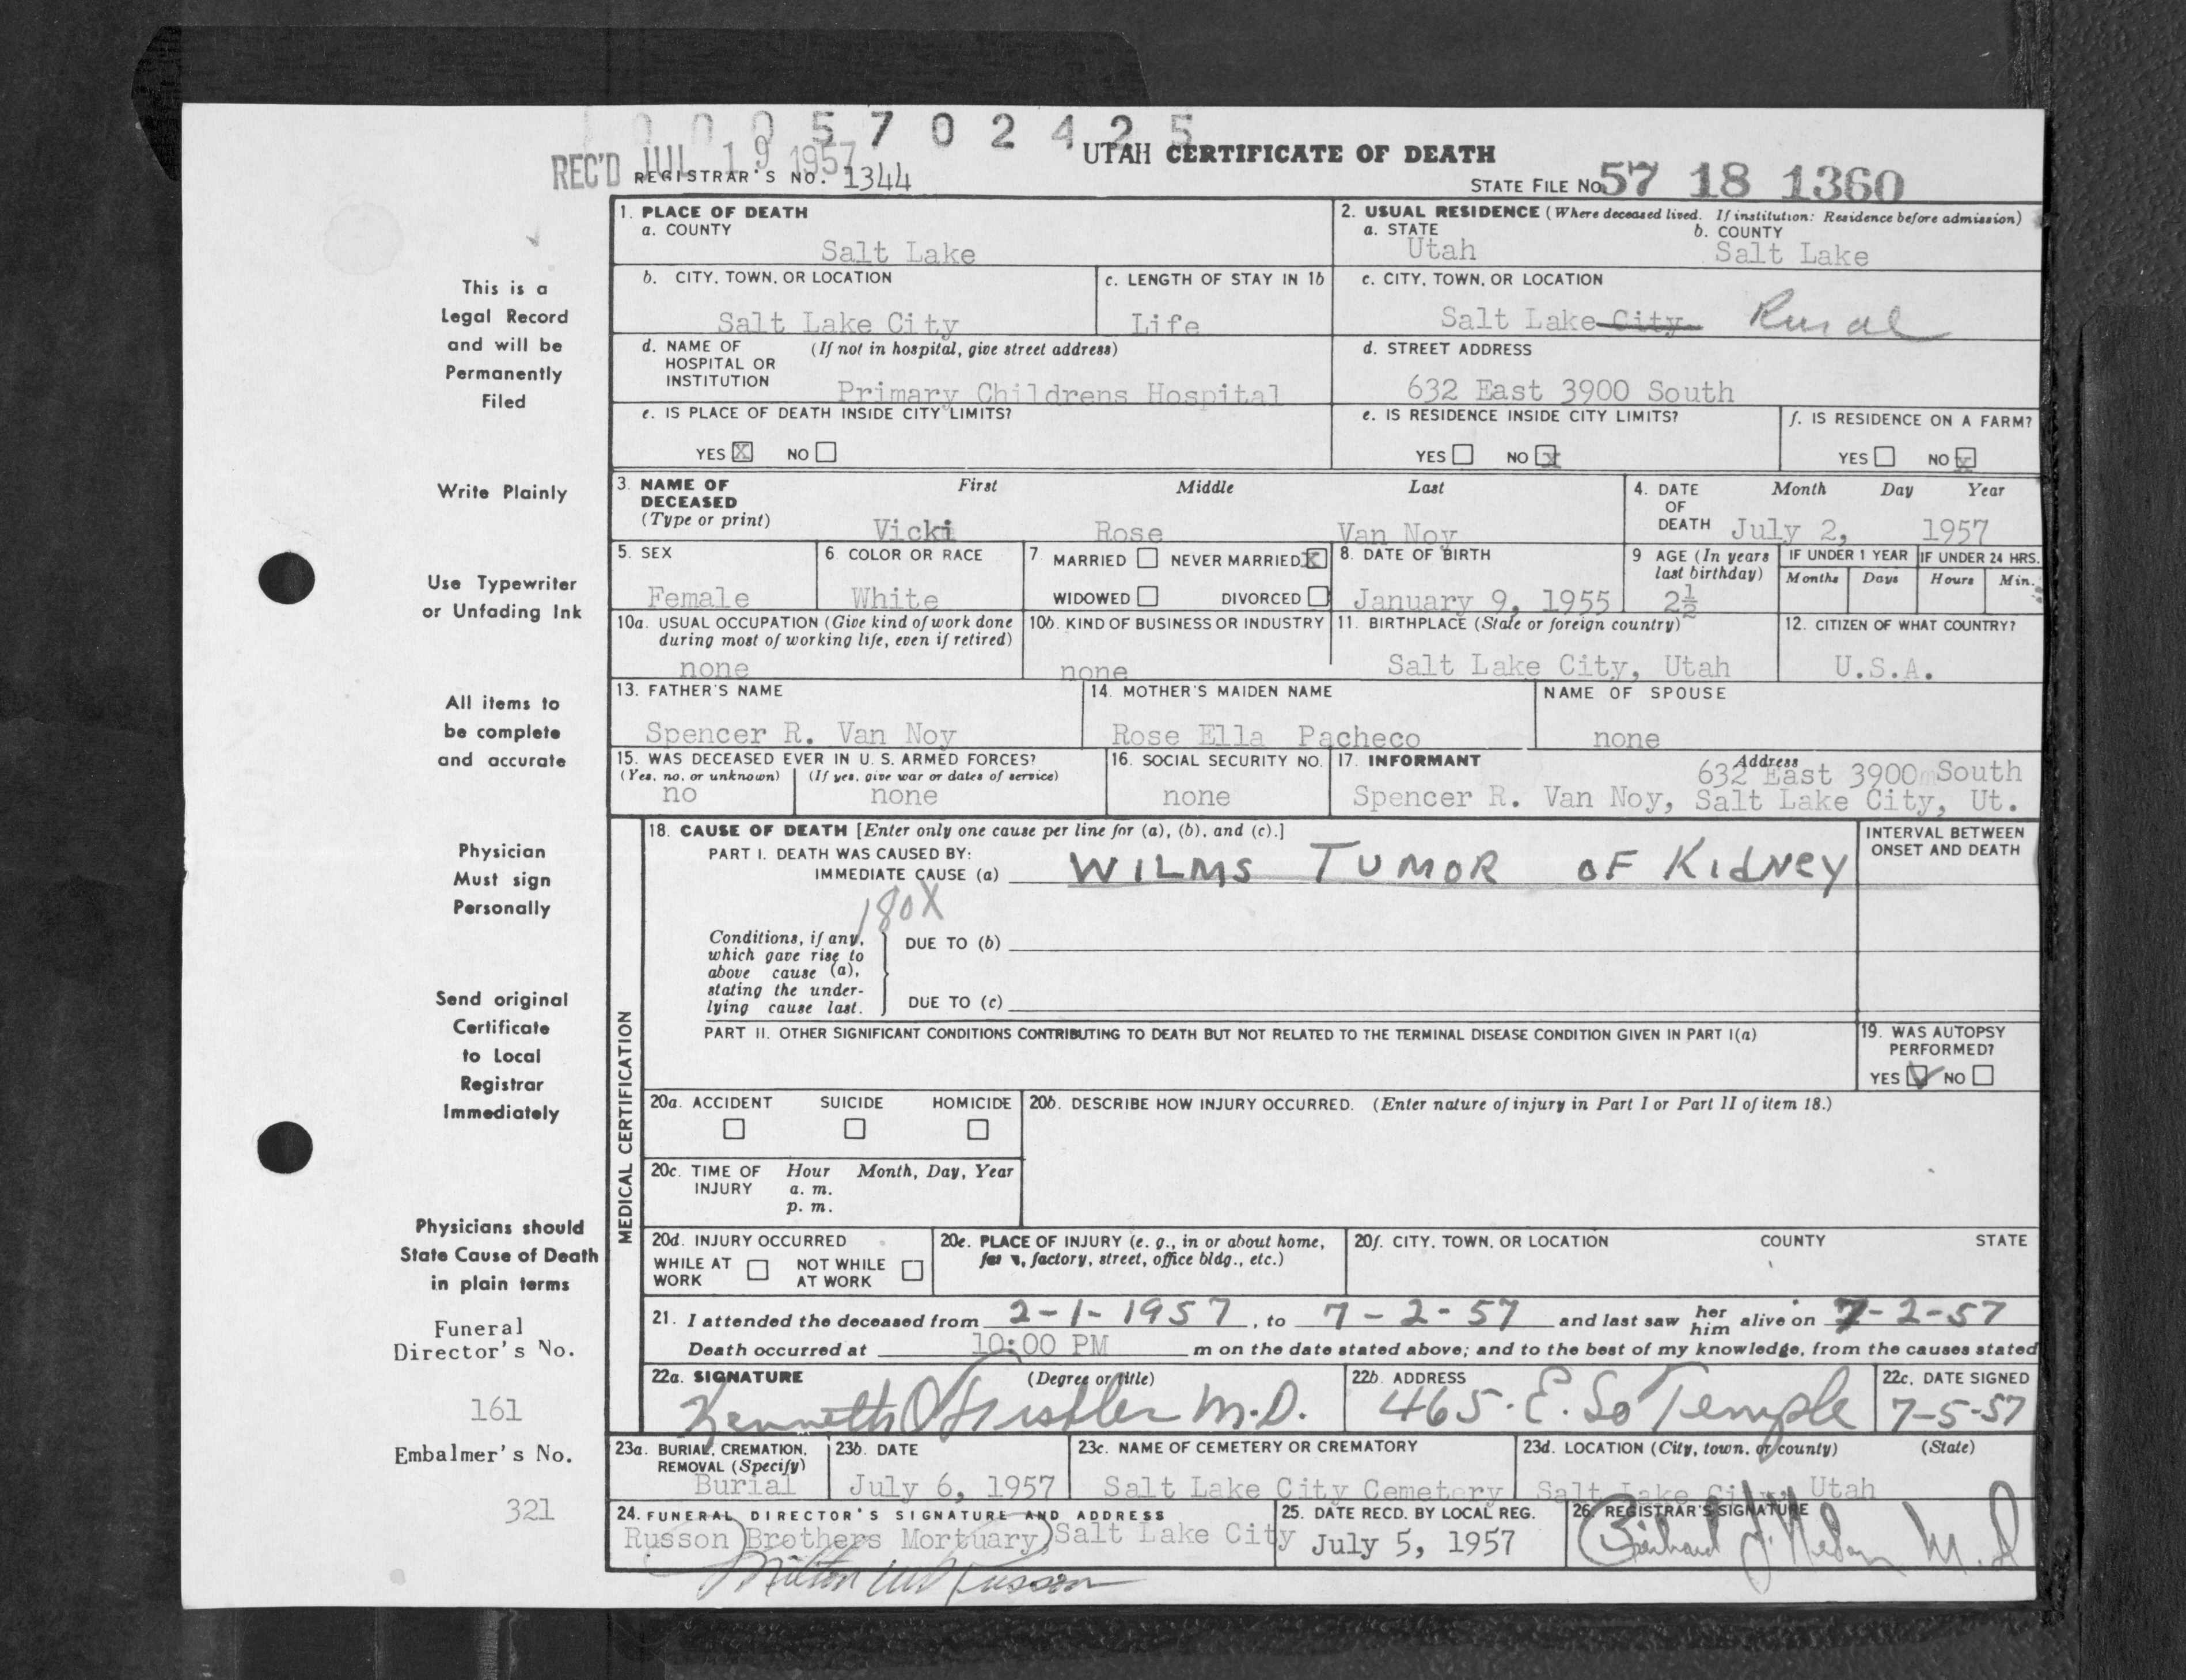 1 0 0 0 5 7 0 2 4 2 5
REC'D JUL 19 1957
UTAH CERTIFICATE OF DEATH
REGISTRAR'S NO. 1344
STATE FILE NO. 57 18 1360
1. PLACE OF DEATH
a. COUNTY
Salt Lake
2. USUAL RESIDENCE (Where deceased lived. If institution: Residence before admission)
a. STATE b. COUNTY
Utah Salt Lake
This is a
Legal Record
and will be
Permanently
Filed
b. CITY, TOWN, OR LOCATION
Salt Lake City
c. LENGTH OF STAY IN 1b
Life
c. CITY, TOWN, OR LOCATION
Salt Lake City Rural
d. NAME OF (If not in hospital, give street address)
HOSPITAL OR
INSTITUTION
Primary Childrens Hospital
d. STREET ADDRESS
632 East 3900 South
e. IS PLACE OF DEATH INSIDE CITY LIMITS?
YES X NO
e. IS RESIDENCE INSIDE CITY LIMITS?
YES NO x
f. IS RESIDENCE ON A FARM?
YES NO x
Write Plainly
3. NAME OF First Middle Last
DECEASED
(Type or print)
Vicki Rose Van Noy
4. DATE Month Day Year
OF
DEATH July 2, 1957
Use Typewriter
or Unfading Ink
5. SEX
Female
6. COLOR OR RACE
White
7. MARRIED NEVER MARRIED X
WIDOWED DIVORCED
8. DATE OF BIRTH
January 9, 1955
9 AGE (In years
last birthday)
2½
IF UNDER 1 YEAR IF UNDER 24 HRS.
Months Days Hours Min.
10a. USUAL OCCUPATION (Give kind of work done
during most of working life, even if retired)
none
10b. KIND OF BUSINESS OR INDUSTRY
none
11. BIRTHPLACE (State or foreign country)
Salt Lake City, Utah
12. CITIZEN OF WHAT COUNTRY?
U.S.A.
All items to
be complete
and accurate
13. FATHER'S NAME
Spencer R. Van Noy
14. MOTHER'S MAIDEN NAME
Rose Ella Pacheco
NAME OF SPOUSE
none
15. WAS DECEASED EVER IN U. S. ARMED FORCES?
(Yes, no, or unknown) (If yes, give war or dates of service)
no none
16. SOCIAL SECURITY NO.
none
17. INFORMANT Address
632 East 3900 South
Spencer R. Van Noy, Salt Lake City, Ut.
MEDICAL CERTIFICATION
Physician
Must sign
Personally
18. CAUSE OF DEATH [Enter only one cause per line for (a), (b), and (c).]
PART I. DEATH WAS CAUSED BY:
IMMEDIATE CAUSE (a) WILMS TUMOR OF KIDNEY
INTERVAL BETWEEN
ONSET AND DEATH
180X
Conditions, if any,
which gave rise to
above cause (a),
stating the under-
lying cause last.
DUE TO (b)
DUE TO (c)
Send original
Certificate
to Local
Registrar
Immediately
PART II. OTHER SIGNIFICANT CONDITIONS CONTRIBUTING TO DEATH BUT NOT RELATED TO THE TERMINAL DISEASE CONDITION GIVEN IN PART I(a)
19. WAS AUTOPSY
PERFORMED?
YES ✓ NO
20a. ACCIDENT SUICIDE HOMICIDE
20b. DESCRIBE HOW INJURY OCCURRED. (Enter nature of injury in Part I or Part II of item 18.)
20c. TIME OF Hour Month, Day, Year
INJURY a. m.
p. m.
Physicians should
State Cause of Death
in plain terms
20d. INJURY OCCURRED
WHILE AT NOT WHILE
WORK AT WORK
20e. PLACE OF INJURY (e. g., in or about home,
factory, street, office bldg., etc.)
20f. CITY, TOWN, OR LOCATION COUNTY STATE
21. I attended the deceased from 2-1-1957, to 7-2-57 and last saw her him alive on 7-2-57
Death occurred at 10:00 PM m on the date stated above; and to the best of my knowledge, from the causes stated
Funeral
Director's No.
161
Embalmer's No.
321
22a. SIGNATURE (Degree or title)
Kenneth M.D.
22b. ADDRESS
465. E. So Temple
22c. DATE SIGNED
7-5-57
23a. BURIAL, CREMATION,
REMOVAL (Specify)
Burial
23b. DATE
July 6, 1957
23c. NAME OF CEMETERY OR CREMATORY
Salt Lake City Cemetery
23d. LOCATION (City, town, or county) (State)
Salt Lake City, Utah
24. FUNERAL DIRECTOR'S SIGNATURE AND ADDRESS
Russon Brothers Mortuary, Salt Lake City
Milton Russon
25. DATE RECD. BY LOCAL REG.
July 5, 1957
26. REGISTRAR'S SIGNATURE
M.D